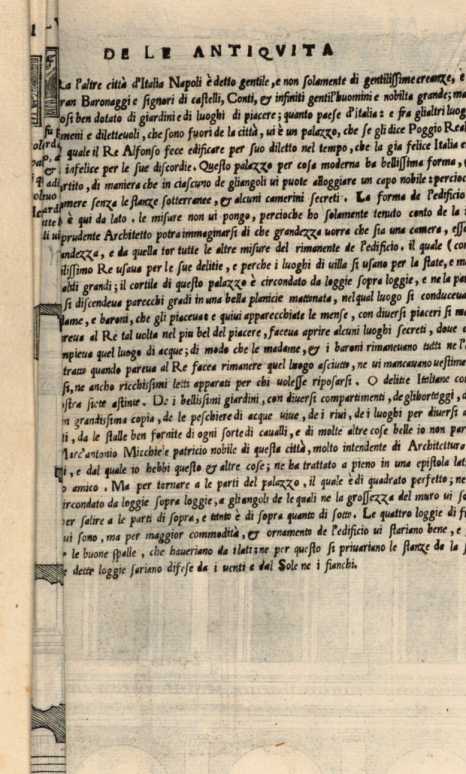 DE LE ANTIQVITA
La l'altre città d'Italia Napoli è detto gentile, e non solamente di gentilissime creanze, e
ran Baronaggi e signori di castelli, Conti, & infiniti gentil'huomini e nobilta grande; ma
osi ben dotato di giardini e di luoghi di piacere; quanto paese d'italia: e fra gli altri luog
meni e diletteuoli, che sono fuori de la città, ui è un palazzo, che se gli dice Poggio Real
quale il Re Alfonso fece edificare per suo diletto nel tempo, che la gia felice Italia e
infelice per le sue discordie. Questo palazzo per cosa moderna ha bellissima forma,
rtito, di maniera che in ciascuno de gliangoli ui puote alloggiare un capo nobile: percioc
amere senza le stanze sotterranee, & alcuni camerini secreti. La forma de l'edificio
è qui da lato. le misure non ui pongo, percioche ho solamente tenuto conto de la
prudente Architetto potra immaginarsi di che grandezza uorra che sia una camera, esse
andezza, e da quella tor tutte le altre misure del rimanente de l'edificio. il quale (co
ilissimo Re usaua per le sue delitie, e perche i luoghi di uilla si usano per la state, e ma
aldi grandi; il cortile di questo palazzo è circondato da loggie sopra loggie, e ne la pa
si discendeua parecchi gradi in una bella planicie mattonata, nel qual luogo si conduceua
dame, e baroni, che gli piaceua: e quiui apparecchiate le mense, con diuersi piaceri si ma
areua al Re tal uolta nel piu bel del piacere, faceua aprire alcuni luoghi secreti, doue
mpieua quel luogo di acque; di modo che le madame, & i baroni rimaneuano tutti ne l'
tratto quando pareua al Re facea rimanere quel luogo asciutto, ne ui mancauano uestime
si, ne ancho ricchissimi letti apparati per chi uolesse riposarsi. O delitie Italiane co
ostra siete astinte. De i bellissimi giardini, con diuersi compartimenti, de gliborteggi,
in grandissima copia, de le peschiere di acque uiue, de i riui, de i luoghi per diuersi
i, da le stalle ben fornite di ogni sorte di caualli, e di molte altre cose belle io non par
Marc'antonio Micchiele patricio nobile di questa città, molto intendente di Architettura
i, e dal quale io hebbi questo & altre cose; ne ha trattato a pieno in una epistola lat
o amico. Ma per tornare a le parti del palazzo, il quale è di quadrato perfetto; ne
ircondato da loggie sopra loggie, a gliangoli de le quali ne la grossezza del muro ui so
er salire a le parti di sopra, e tanto è di sopra quanto di sotto. Le quattro loggie di fu
ui sono, ma per maggior commodità, & ornamento de l'edificio ui stariano bene, e
le buone spalle, che haueriano da i lati: ne per questo si priuariano le stanze da la
dette loggie sariano difese da i uenti e dal Sole ne i fianchi.